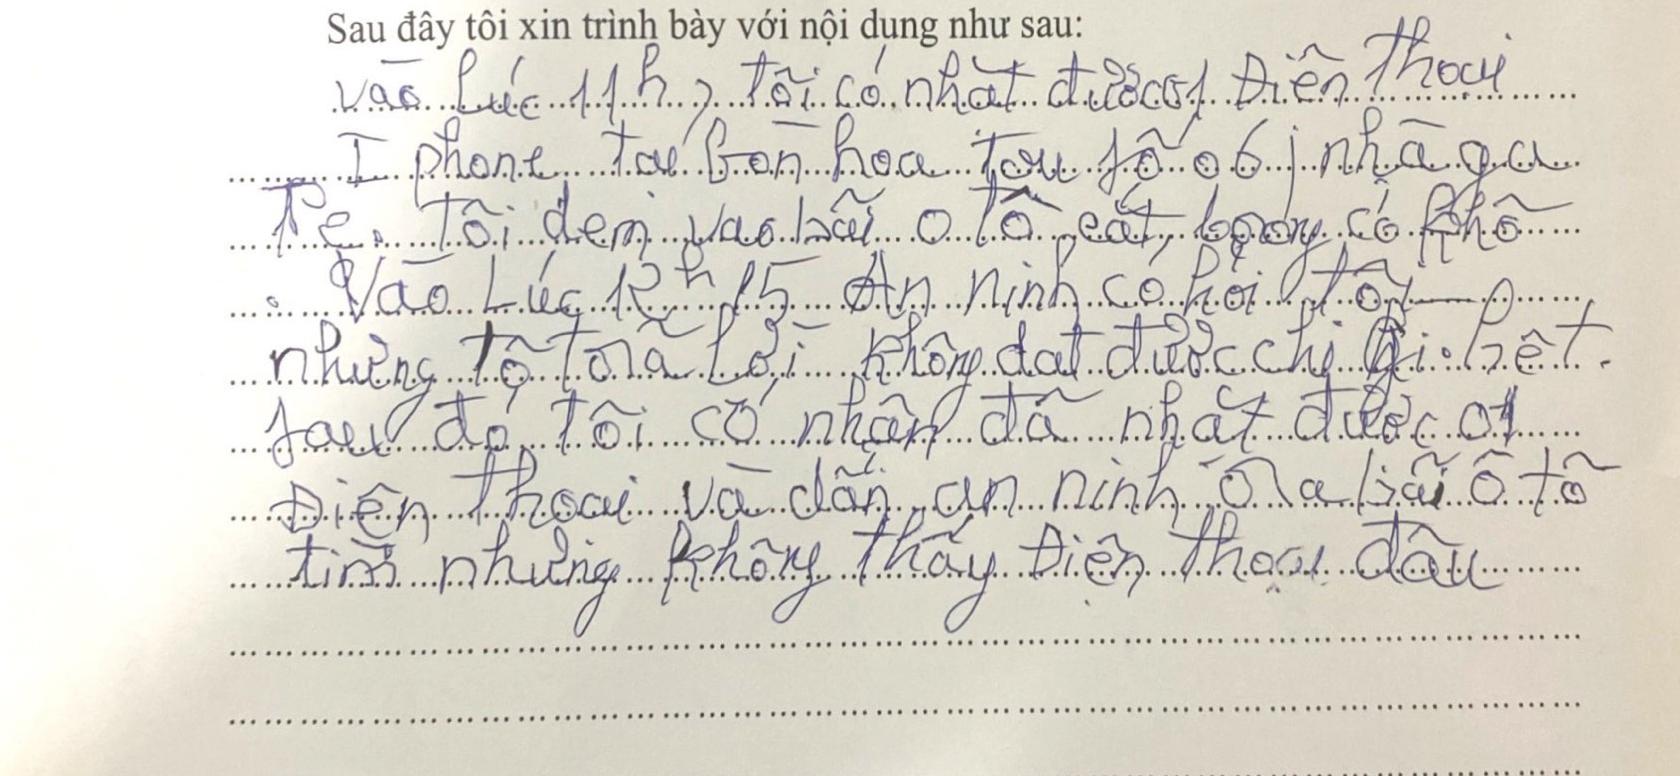 Sau đây tôi xin trình bày với nội dung như sau:
vào lúc 11h, tôi có nhặt được 01 Điện thoại
I phone tại bồn hoa tại số 06 nhà ga
T2. Tôi đem vào bãi ô tô cất, trong có khổ
Vào Lúc 12h15 An ninh có hỏi tôi
nhưng tôi trả lời không đạt được chị gì hết.
sau đó tôi có nhận đã nhặt được 01
Điện thoại và dẫn an ninh ra bãi ô tô
tìm nhưng không thấy Điện thoại đâu